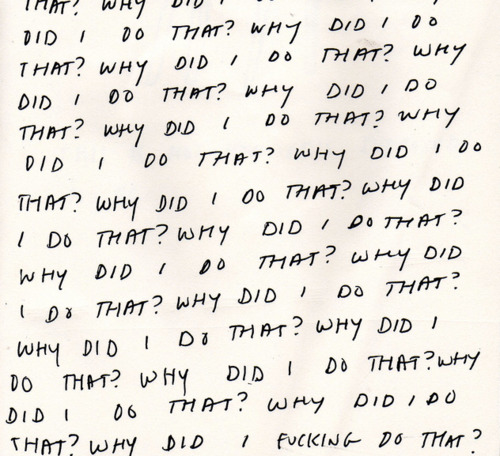 THAT? WHY DID I DO
DID I DO THAT? WHY DID I DO
THAT? WHY DID I DO THAT? WHY
DID I DO THAT? WHY DID I DO
THAT? WHY DID I DO THAT? WHY
DID I DO THAT? WHY DID I DO
THAT? WHY DID I DO THAT? WHY DID
I DO THAT? WHY DID I DO THAT?
WHY DID I DO THAT? WHY DID
I DO THAT? WHY DID I DO THAT?
WHY DID I DO THAT? WHY DID I
DO THAT? WHY DID I DO THAT? WHY
DID I DO THAT? WHY DID I DO
THAT? WHY DID I FUCKING DO THAT?